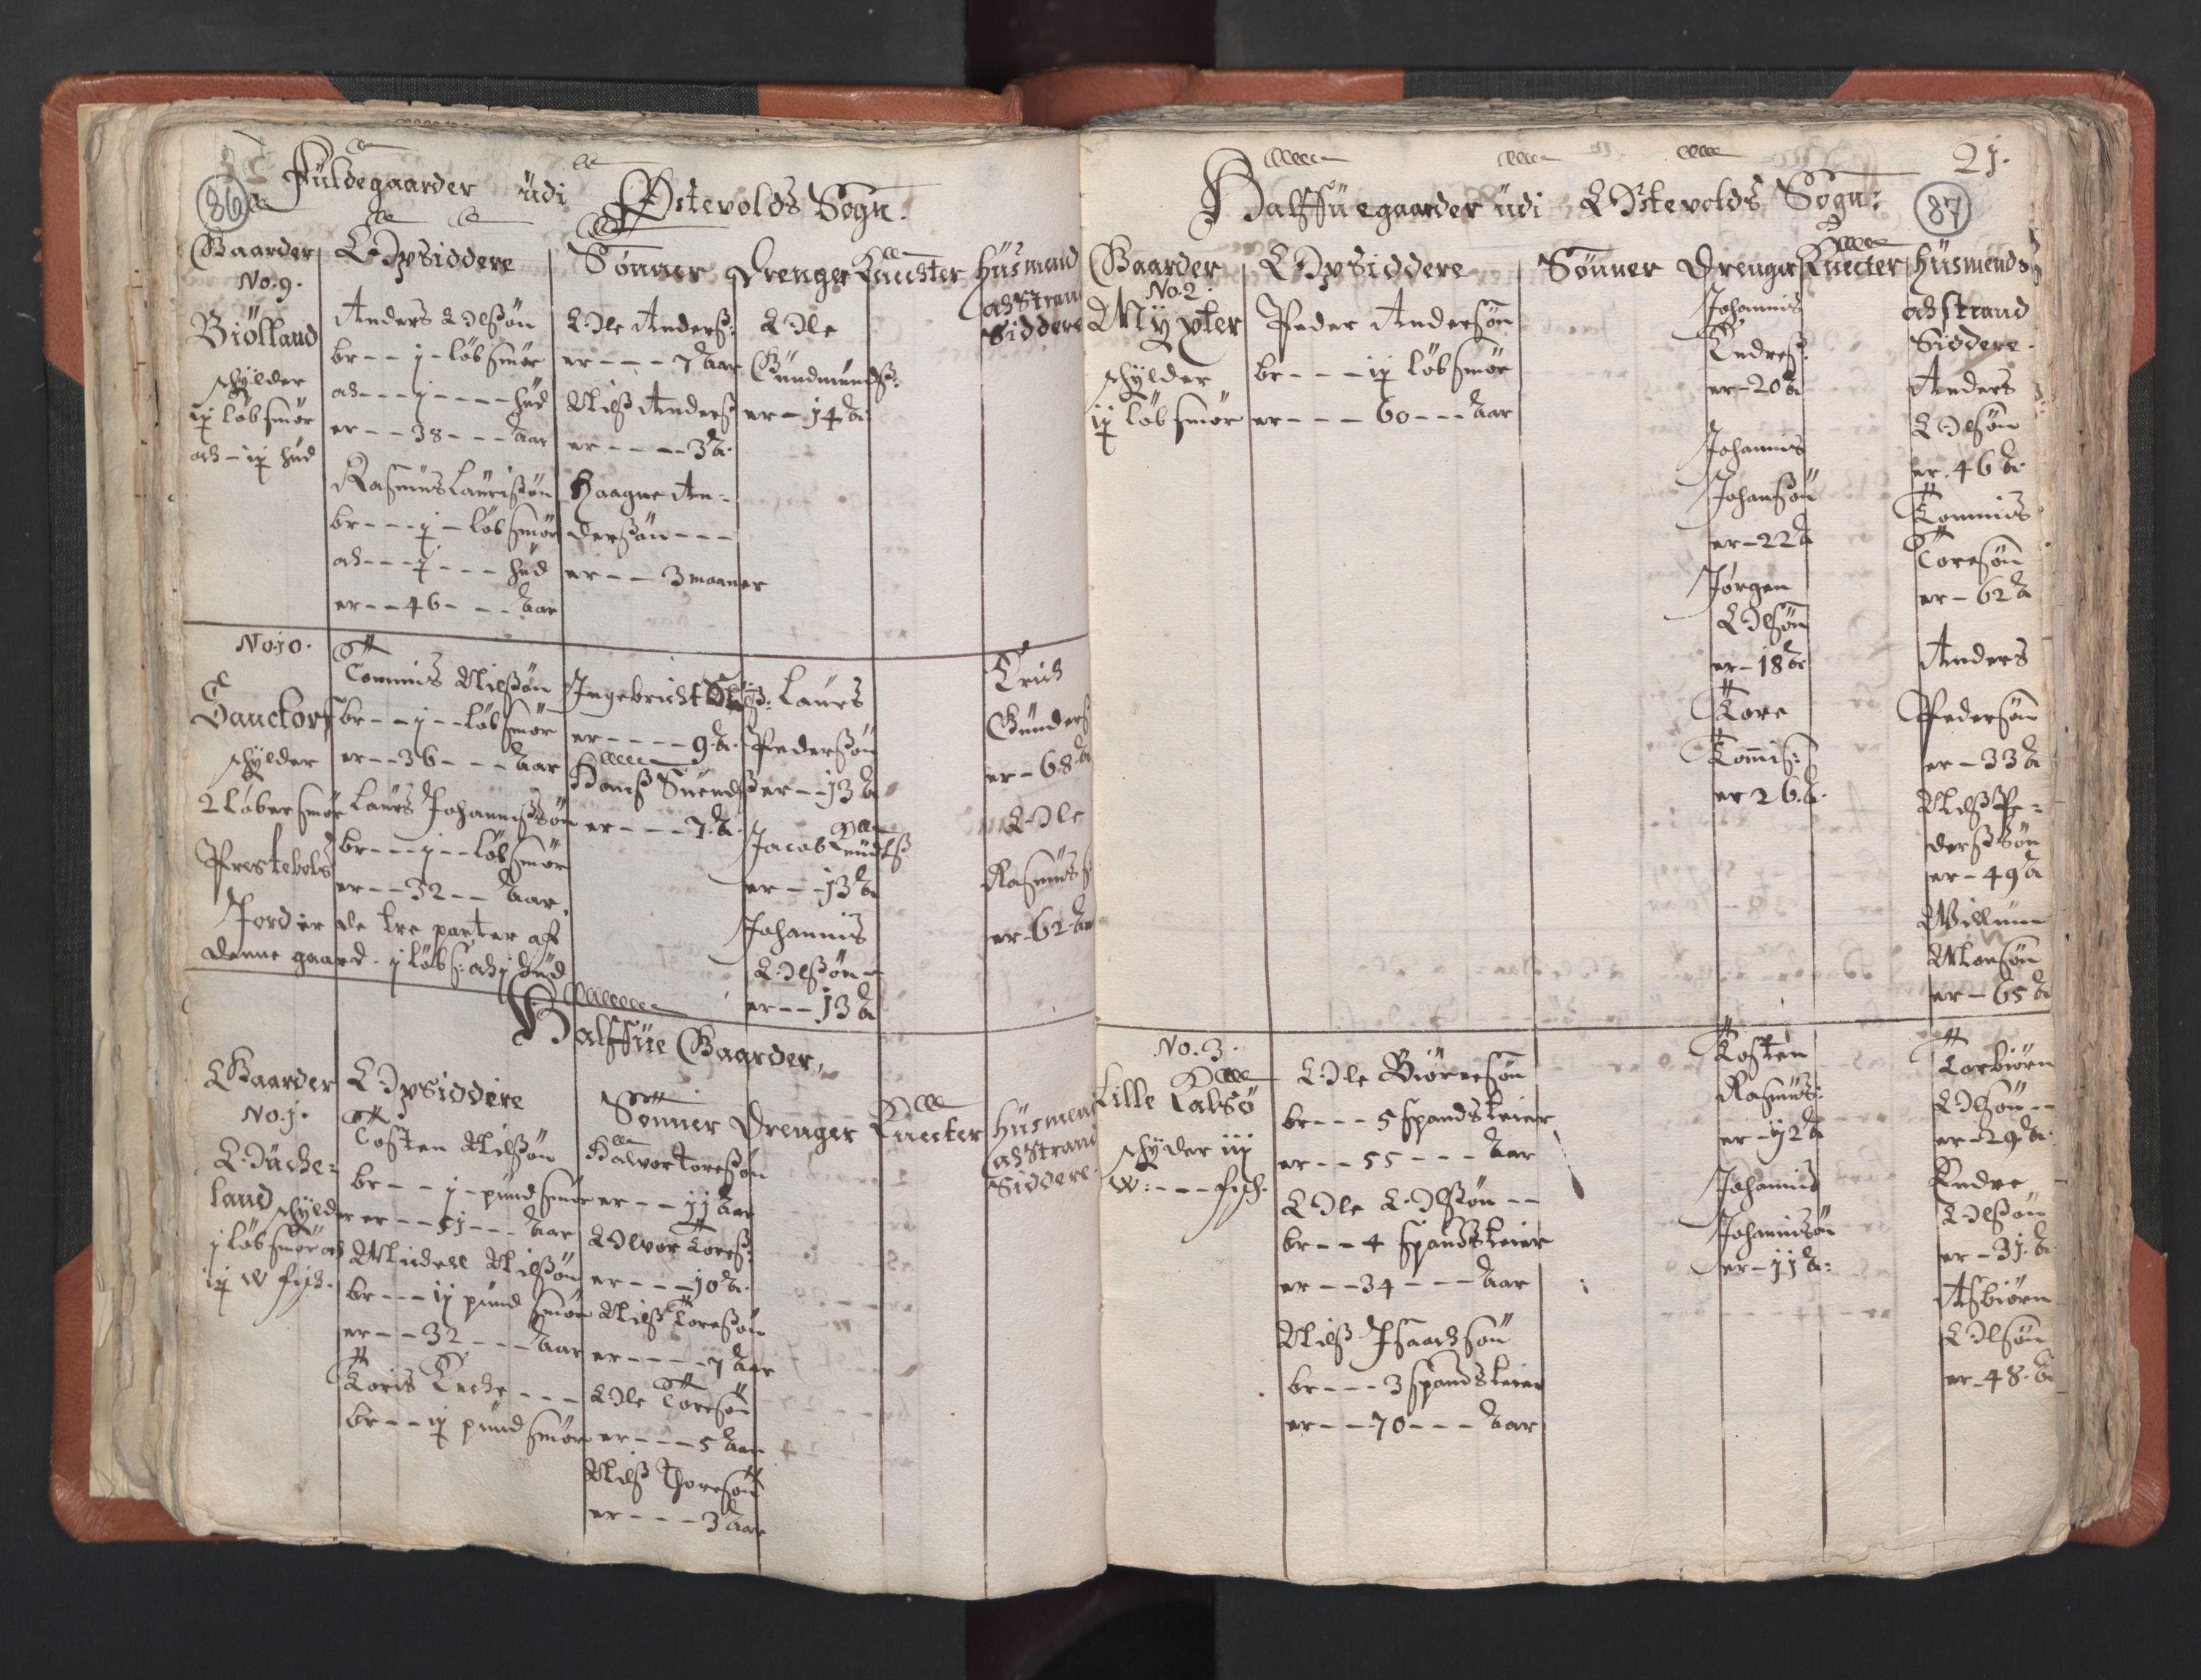 86
Fuldegaarder udi Østevolds Sogn.
Gaarder
Opsiddere
Sønner
Drenger
Knechter
Husmend
och Strand
Siddere
No. 9.
Biølland
schylder
ij løb smør
och - ij hud
Anders Olsøn
br - - j - løb smør
och - - - j - - - - hud
er - - 38 - - - Aar
Rasmus Lauridsøn
br - - - j - løb smør
och - - - j - - - hud
er - - 46 - - - Aar
Ole Anderß:
er - - - - 7 Aar
Nilß Anderß
er - - - - 3 A.
Haagne An-
derßøn - - -
er - - - 3 maaner
Ole
Gundmundß:
er - 14 A.
No. 10.
schylder
2 løber smør
Prestebols
Jord er de tre parter aff
denne gaard - j løb s: och j hud
Tommis Nilßøn
br - - j - - løb smør
er - - 36 - - - - Aar
Laurs Johannißøn
br - - - j - - løb smør
er - - 32 - - Aar.
Ingebricht
er - - - - 9 A.
Hanß Suendß
er - - - 7 A.
Laurs
Pederßøn
er - - 13 A
Jacob Knudsß
er - - 13 A
Johannis
Olßøn -
er - - 13 A
Erich
Gunderß
er - 68 A
Ole
Rasmusß
er - 62 A
Halffue Gaarder.
Gaarder
Opsiddere
Sønner
Drenger
Knecter
Husmend
och Strand
Siddere
No. j.
land schylder
j løb smør och
ij w fisch.
Tosten Nilßøn
br - - j - pund smør
er - - 51 - - - Aar
Nilßøn
br - - - ij pund smør
er - - 32 - - - Aar
br - - ij pund smør
Halvor Toreßøn
er - - - 11 Aar
Toreß:
er - - - 10 A.
Nilß Toreßøn
er - - - - 7 Aar
Ole Toresøn
er - - - 5 Aar
Nilß Thoresøn
er - - - 3 Aar
21.
87
Halffue gaarder udi Østevolds Sogn:
Gaarder
Opsiddere
Sønner
Drenger
Knecter
Husmend
och Strand
Siddere.
No. 2.
schylder
ij løb smør
Peder Andersøn
br - - - ij løb smør
er - - - 60 - - - Aar
Johannis
Endreß:
er - 20 A
Johannis
Johansøn
er - 22 A
Jørgen
Olsøn
er - 18 A
Tore
Tomis:
er 26 A.
Anders
Olsøn
er 46 A.
Tommis
Toresøn
er - 62 A
Anders
Pedersøn
er - 33 A
Nilß Pe-
derßøn
er - 49 A
Willum
Monsøn
er - 65 A
No. 3.
Lille Kalsø
schylder iij
w: - - - fisch.
Ole Biørnsøn
br - - - 5 spands leier
er - - 55 - - - Aar
Ole Olßøn - -
br - - 4 spands leier
er - - 34 - - - Aar
Nilß Isaachsøn
br - - - 3 spands leier
er - - 70 - - - Aar
Tosten
Rasmus:
er - 12 A
Johannis
Johannisøn
er - 11 A:
Torbiørn
Olsøn - -
er - 29 A.
Endre
Olßøn
er - 31 A
Asbiørn
Olsøn
er - 48 A